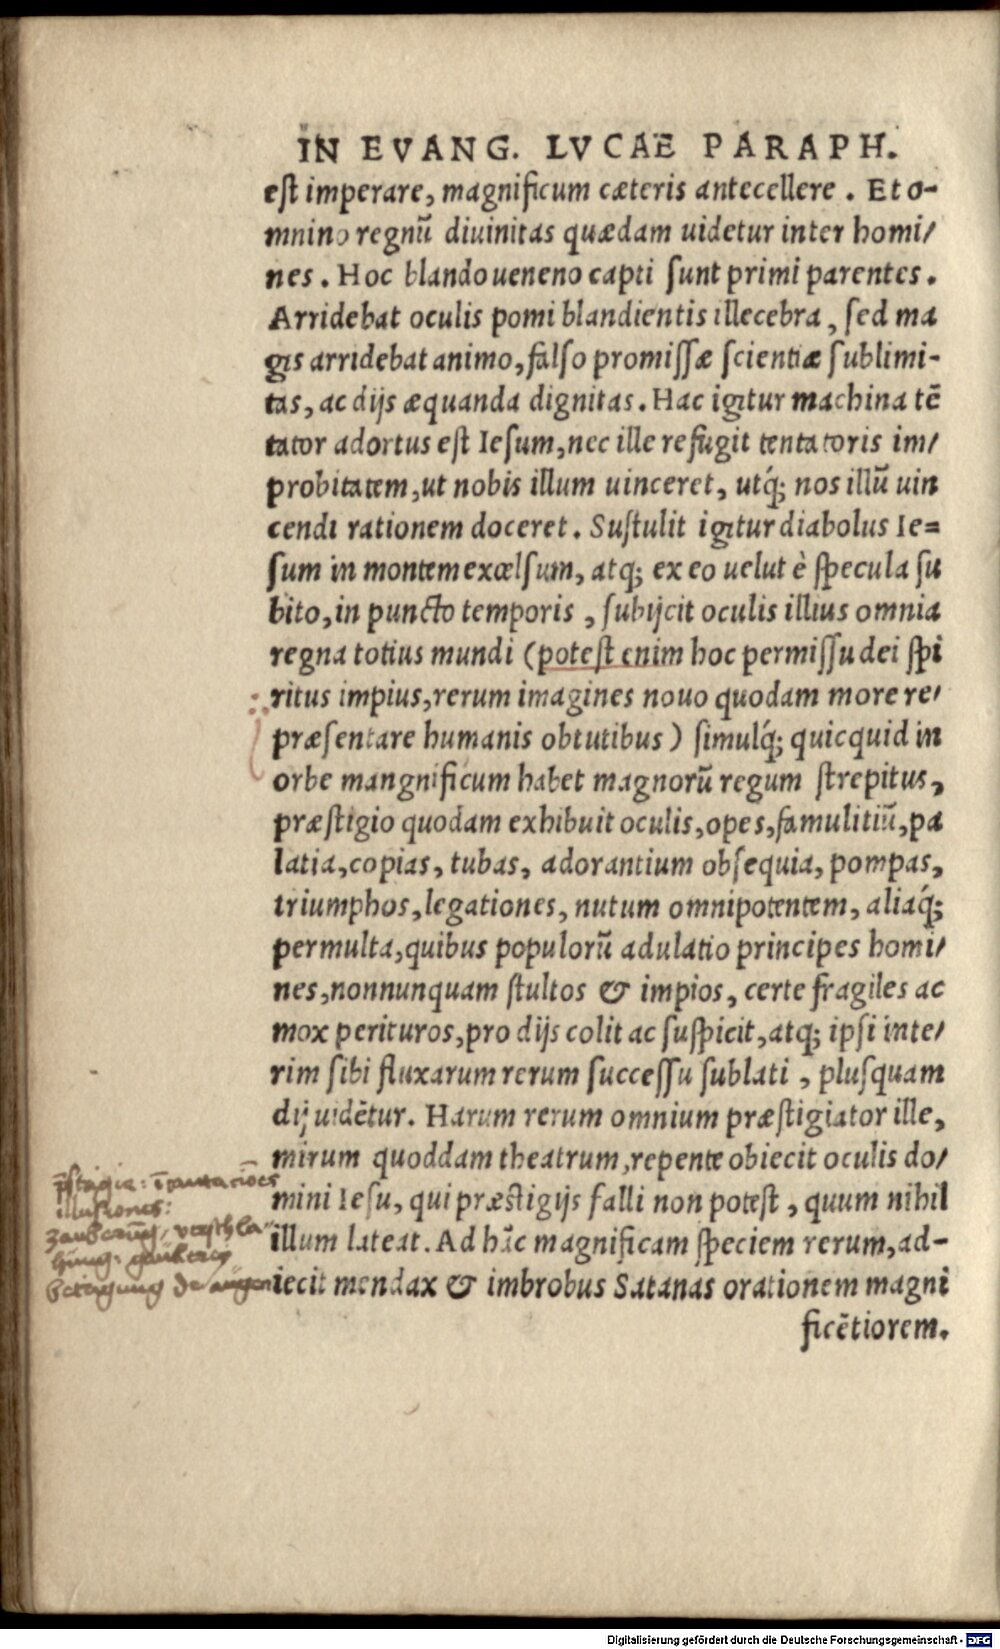 IN EVANG. LVCAE PARAPH.
est imperare, magnificum cæteris antecellere. Et o-
mnino regnū diuinitas quædam uidetur inter homi/
nes. Hoc blando ueneno capti sunt primi parentes.
Arridebat oculis pomi blandientis illecebra, sed ma
gis arridebat animo, falso promissæ scientiæ sublimi-
tas, ac dijs æquanda dignitas. Hac igitur machina tē
tator adortus est Iesum, nec ille refugit tentatoris im/
probitatem, ut nobis illum uinceret, utq́; nos illū uin
cendi rationem doceret. Sustulit igitur diabolus Ie=
sum in montem excelsum, atq; ex eo uelut è specula su
bito, in puncto temporis, subijcit oculis illius omnia
regna totius mundi (potest enim hoc permissu dei spi
ritus impius, rerum imagines nouo quodam more re/
præsentare humanis obtutibus) simulq́; quicquid in
orbe mangnificum habet magnorū regum strepitus,
præstigio quodam exhibuit oculis, opes, famulitiū, pa
latia, copias, tubas, adorantium obsequia, pompas,
triumphos, legationes, nutum omnipotentem, aliaq́;
permulta, quibus populorū adulatio principes homi/
nes, nonnunquam stultos & impios, certe fragiles ac
mox perituros, pro dijs colit ac suspicit, atq; ipsi inte/
rim sibi fluxarum rerum successu sublati, plusquam
dij uidētur. Harum rerum omnium præstigiator ille,
mirum quoddam theatrum, repente obiecit oculis do/
mini Iesu, qui præstigijs falli non potest, quum nihil
illum lateat. Ad hāc magnificam speciem rerum, ad-
iecit mendax & imbrobus Satanas orationem magni
ficētiorem.
illusiones:
Digitalisierung gefördert durch die Deutsche Forschungsgemeinschaft - DFG